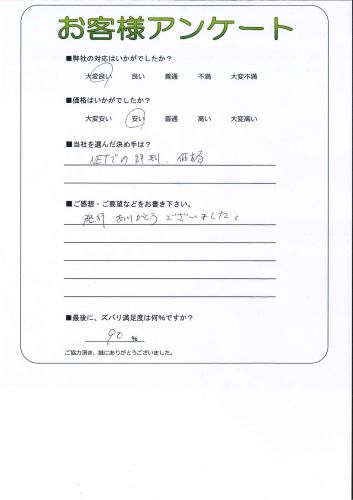 お客様アンケート
■弊社の対応はいかがでしたか？
大変良い 良い 普通 不満 大変不満
■価格はいかがでしたか？
大変安い 安い 普通 高い 大変高い
■当社を選んだ決め手は？
NETでの評判、価格
■ご感想・ご要望などをお書き下さい。
ありがとうございました。
■最後に、ズバリ満足度は何%ですか？
90 %
ご協力頂き、誠にありがとうございました。